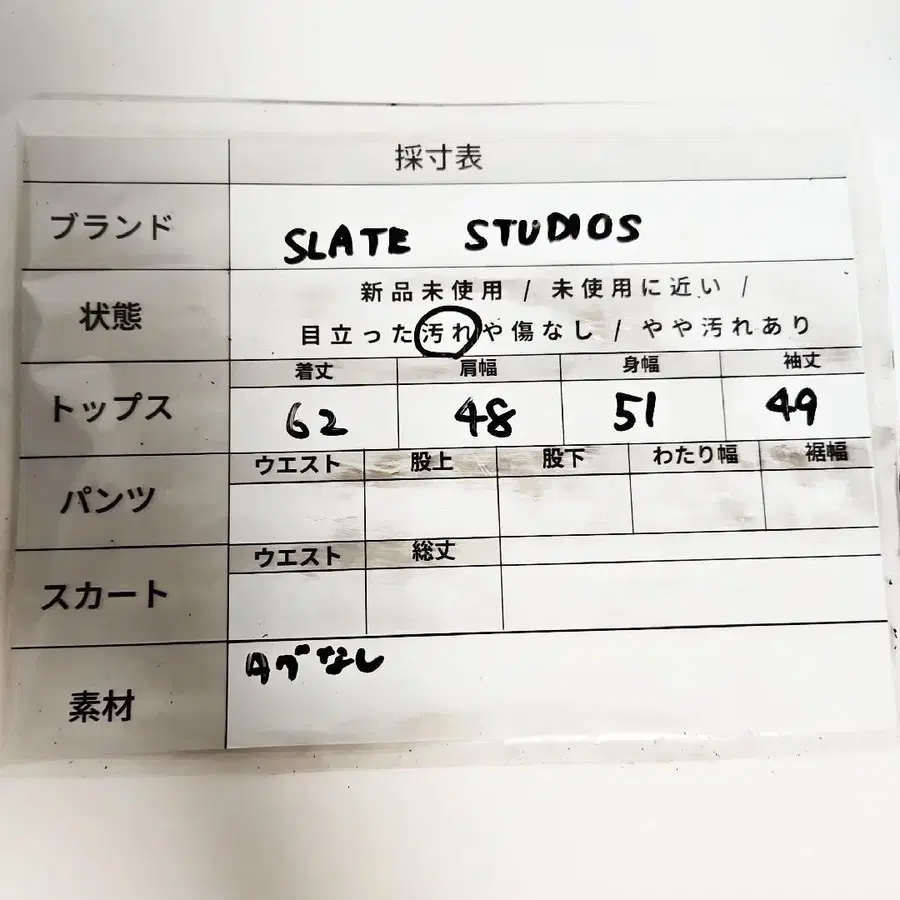 採寸表
ブランド SLATE STUDIOS
状態 新品未使用 / 未使用に近い /
目立った汚れや傷なし / やや汚れあり
着丈 肩幅 身幅 袖丈
トップス 62 48 51 49
ウエスト 股上 股下 わたり幅 裾幅
パンツ
ウエスト 総丈
スカート
素材 タグなし